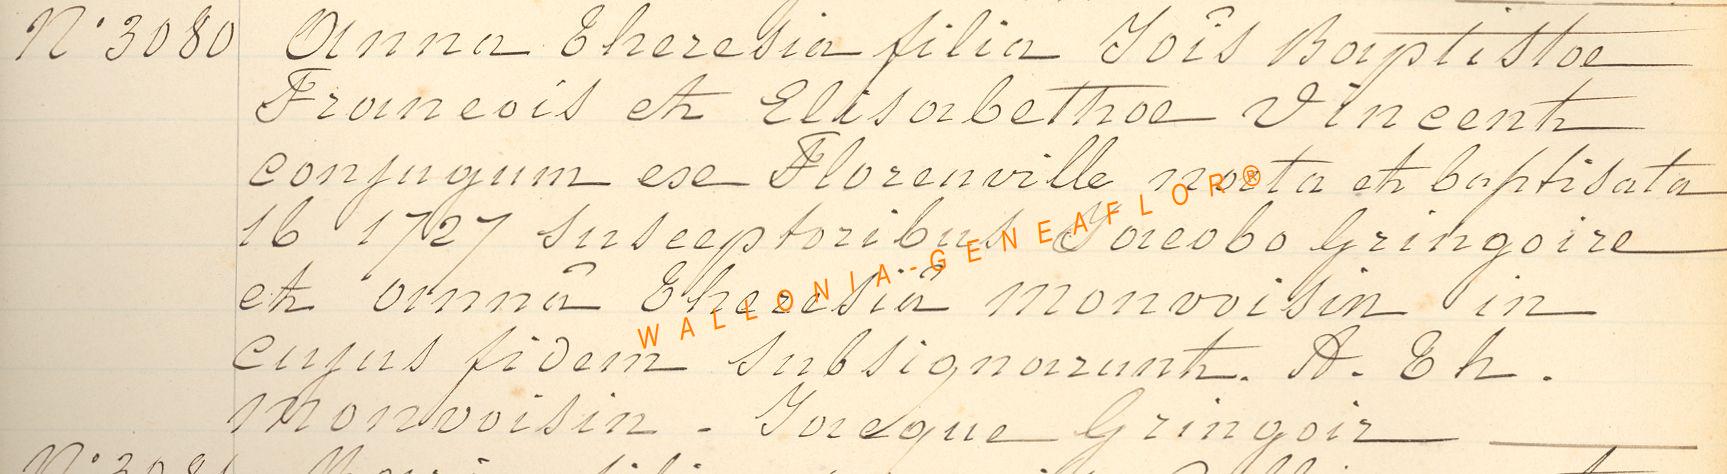 N° 3080 Anna Theresia filia Joîs Baptistae
Francois et Elisabethae Vincent
conjugum ex Florenville nata et baptisata
16 1727 susceptoribus Jacobo Gringoire
et annâ Theresiâ Monvoisin in
cujus fidem subsignarunt. A. Th.
Monvoisin - Jacque Gringoir
WALLONIA-GENEAFLOR®